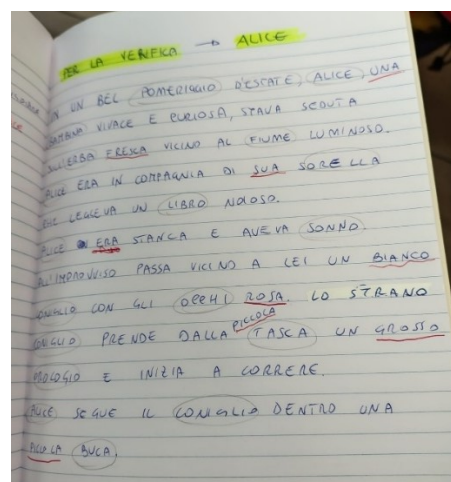 PER LA VERIFICA → ALICE
IN UN BEL POMERIGGIO D'ESTATE, ALICE, UNA
BAMBINA VIVACE E CURIOSA, STAVA SEDUTA
SULL'ERBA FRESCA VICINO AL FIUME LUMINOSO.
ALICE ERA IN COMPAGNIA DI SUA SORELLA
CHE LEGGEVA UN LIBRO NOIOSO.
ALICE ERA STANCA E AVEVA SONNO.
ALL'IMPROVVISO PASSA VICINO A LEI UN BIANCO
CONIGLIO CON GLI OCCHI ROSA. LO STRANO
CONIGLIO PRENDE DALLA PICCOLA TASCA UN GROSSO
OROLOGIO E INIZIA A CORRERE.
ALICE SEGUE IL CONIGLIO DENTRO UNA
PICCOLA BUCA.